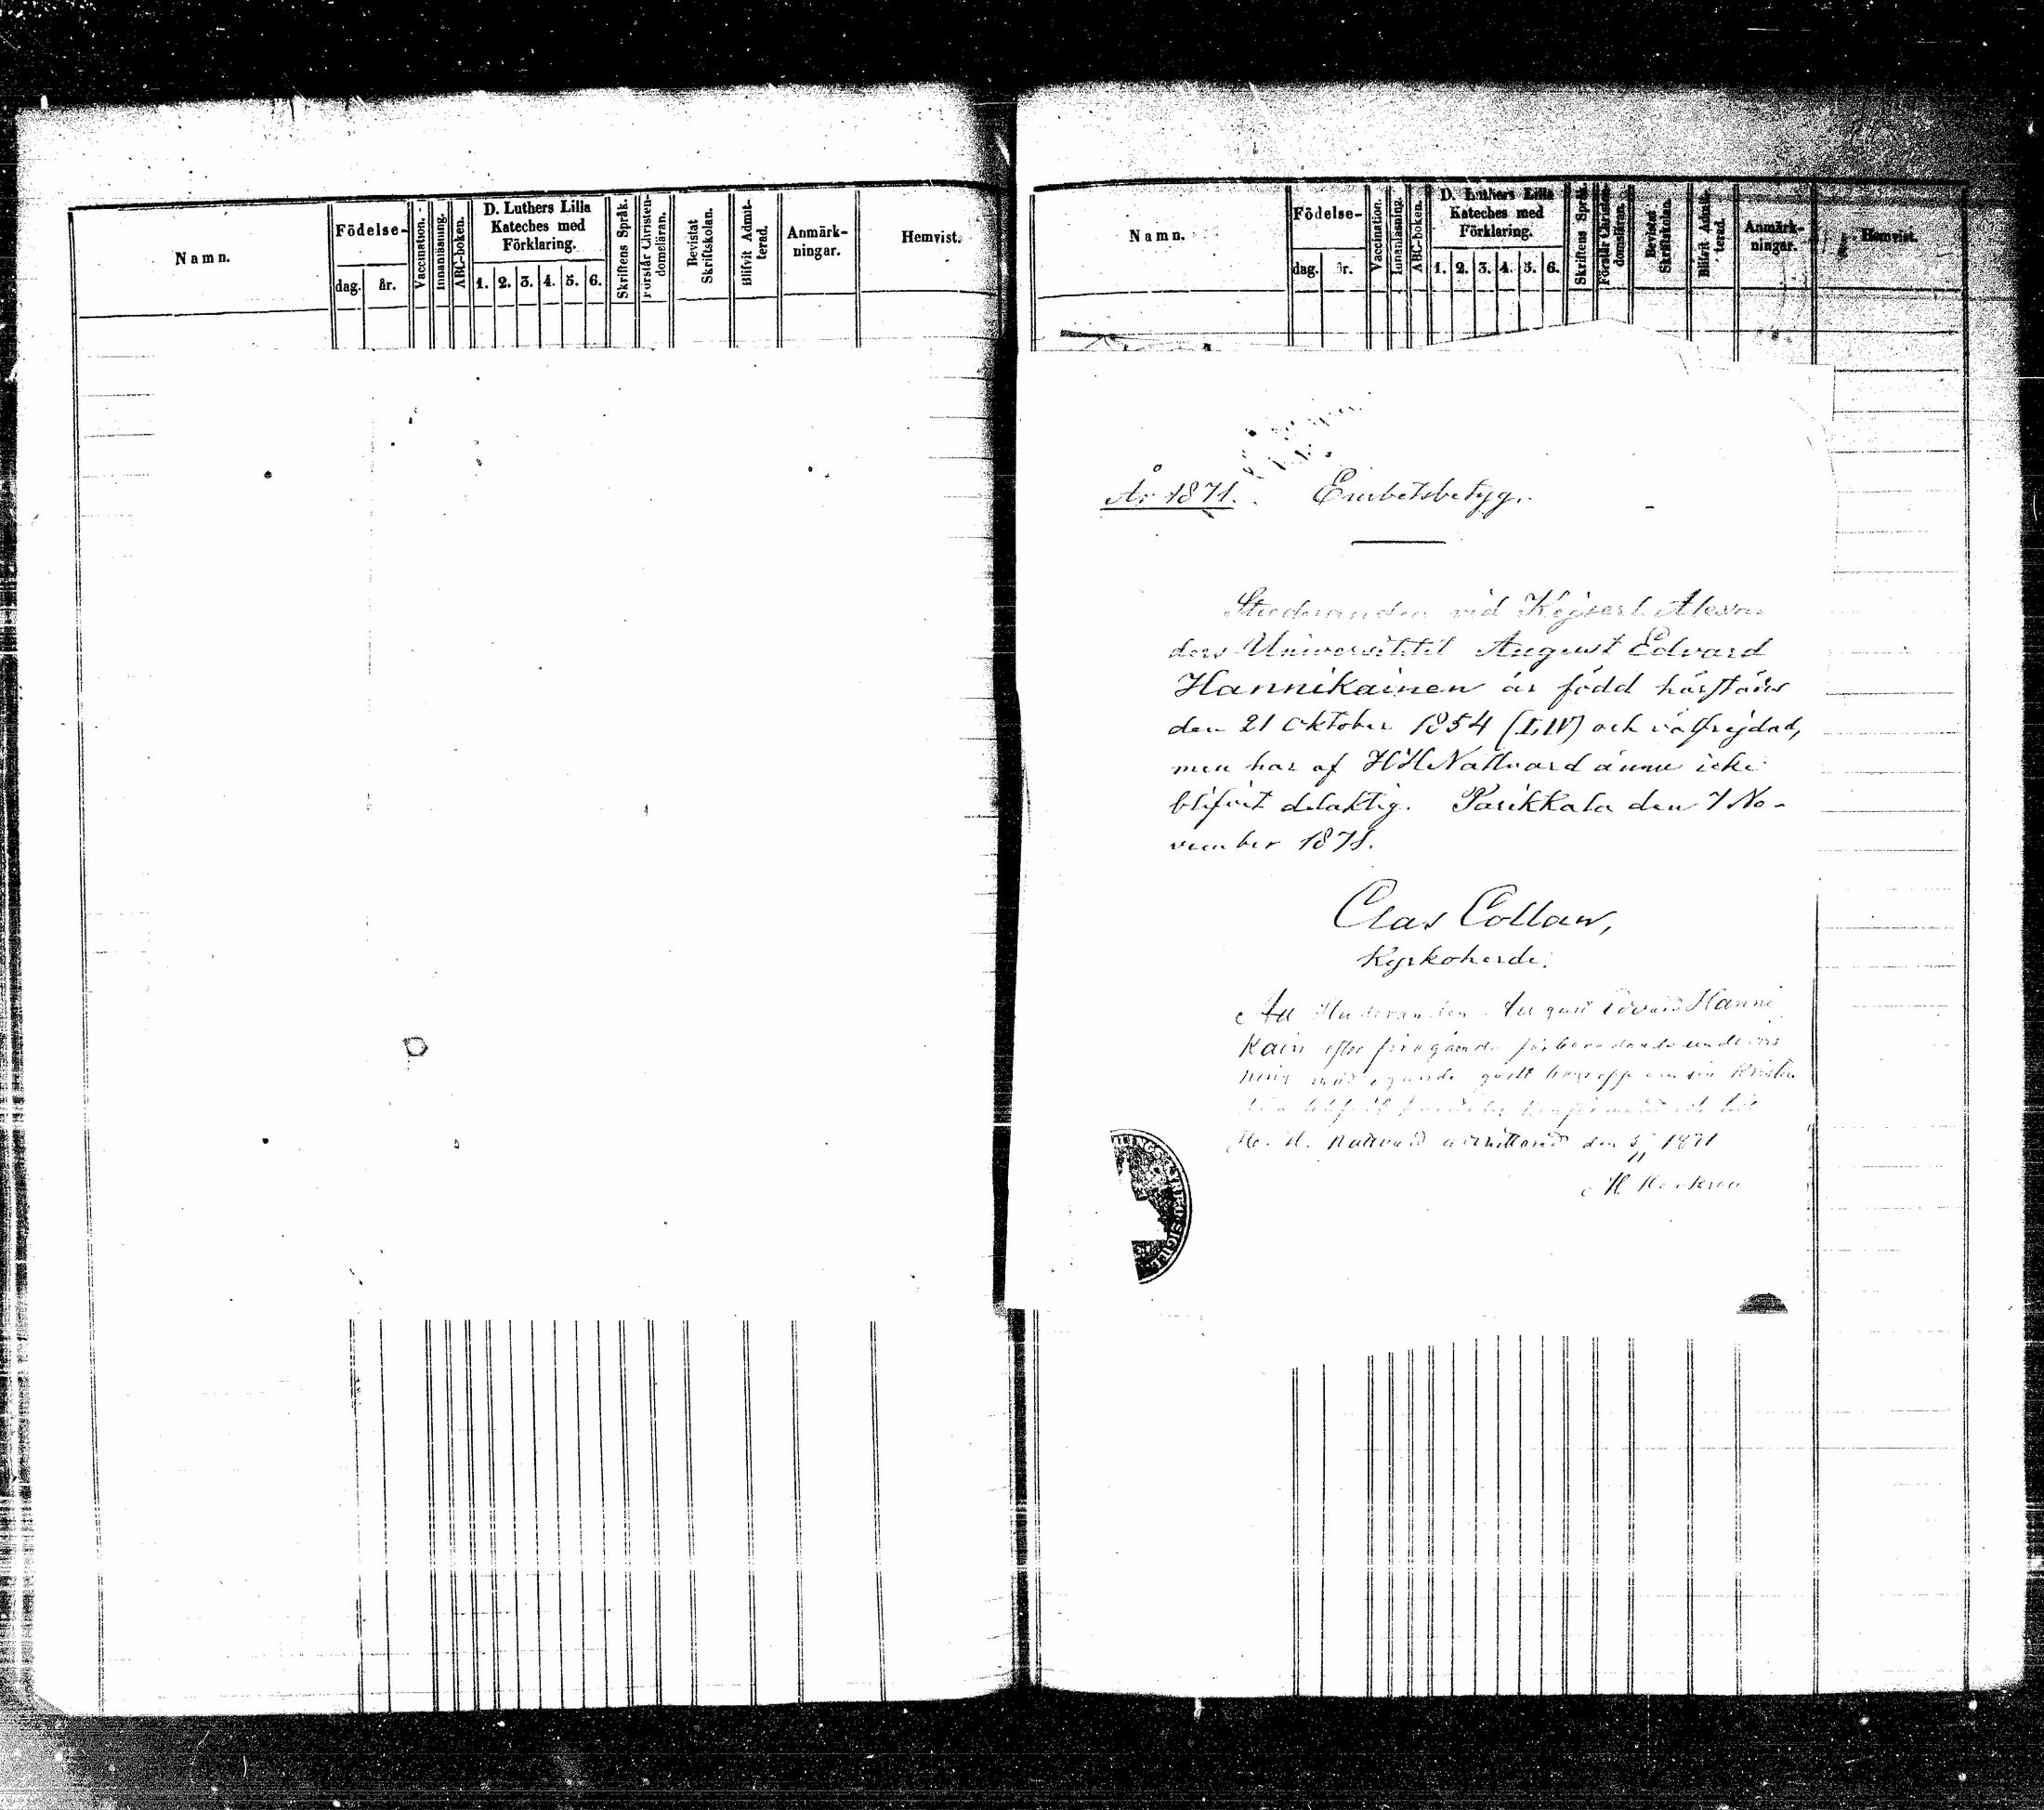 Namn.
Födelse-
dag. år.
Vaccination.
Innanläsning.
ABC-boken.
D. Luthers Lilla
Kateches med
Förklaring.
1. 2. 3. 4. 5. 6.
Skriftens Språk.
Förstår Christen-
domsläran.
Bevistat
Skriftskolan.
Blifvit Admit-
terad.
Anmärk-
ningar.
Hemvist.
Namn.
Födelse-
dag. år.
Vaccination.
Innanläsning.
ABC-boken.
D. Luthers Lilla
Kateches med
Förklaring.
1. 2. 3. 4. 5. 6.
Skriftens Språk.
Förstår Christen-
domsläran.
Bevistat
Skriftskolan.
Blifvit Admit-
terad.
Anmärk-
ningar.
Hemvist.
År 1871. Embetsbetyg.
Studeranden vid Kejserl. Alexan
ders-Universitetet August Edvard
Hannikainen är född härstädes
den 21 Oktober 1854 (LIV) och välfrejdad,
men har af HHNattvard ännu icke
blifvit delaktig. Parikkala den 7 No-
vember 1871.
Clas Collan,
Kyrkoherde.
Att Studeranden August Edvard Hanni
kain efter föregående förberedande undervis
ning med egande godt begrepp om sin Kristen
H. H. Nattvard admitterad den 1871